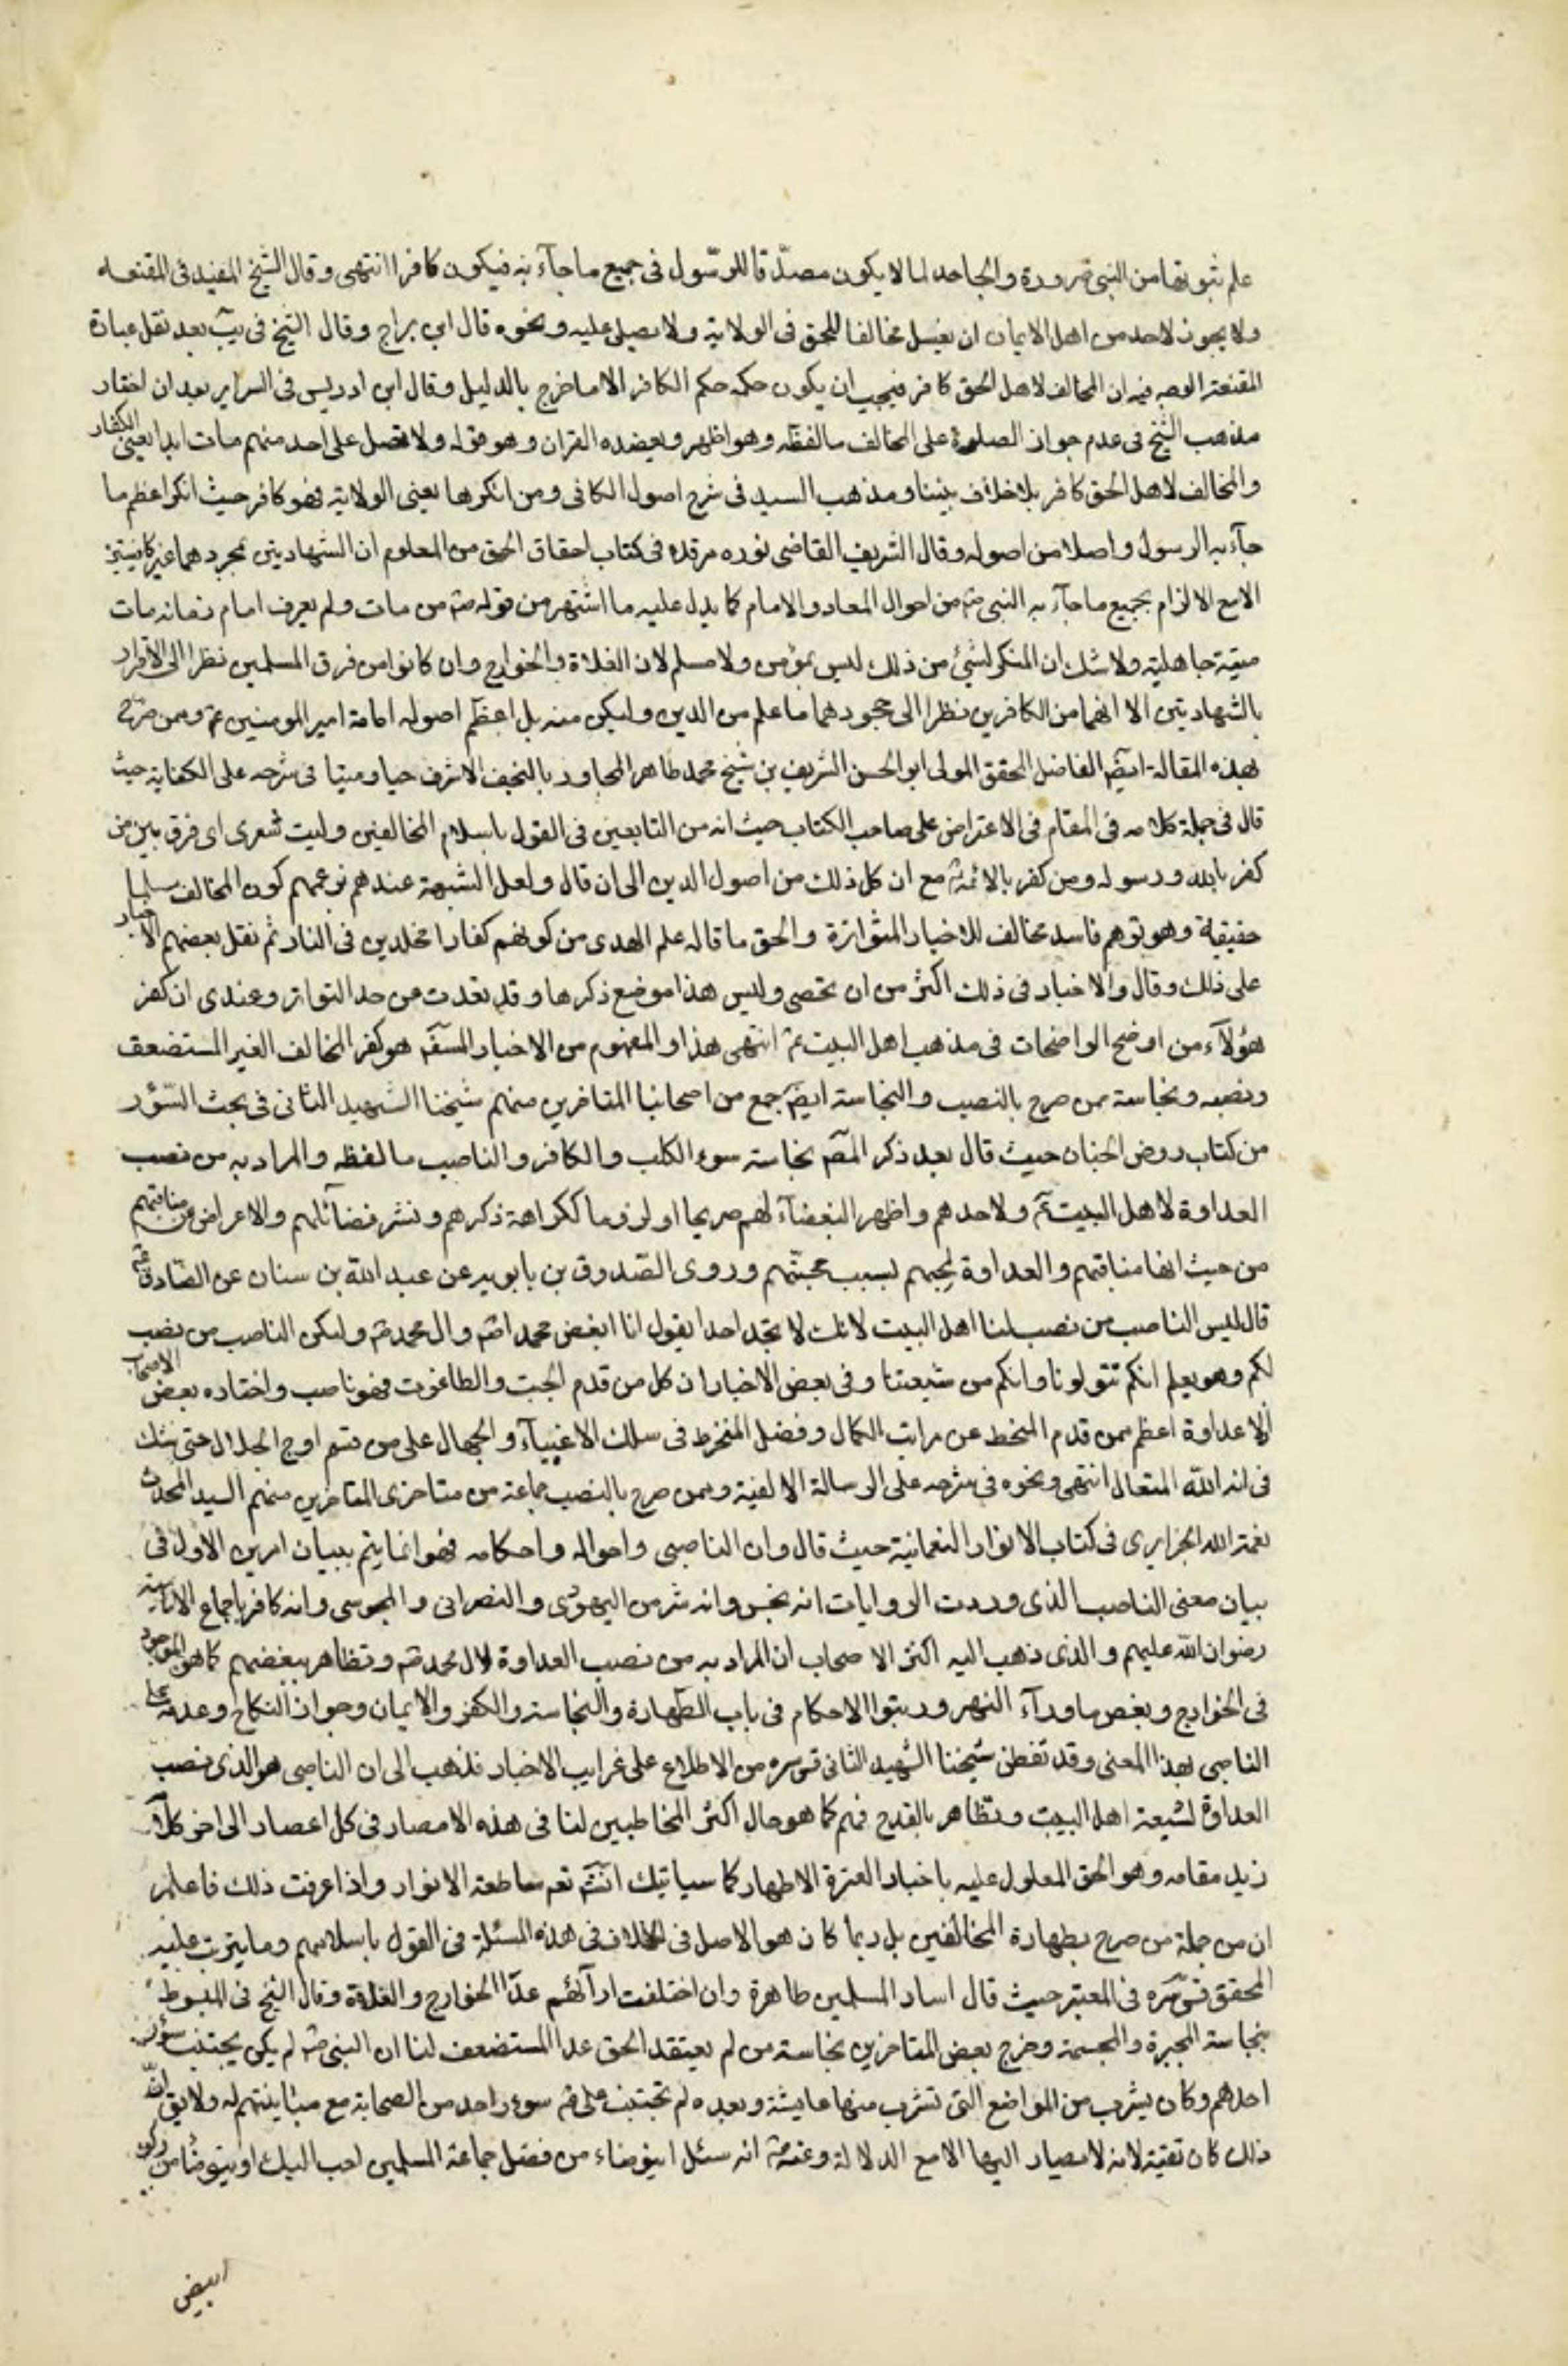 علم ثبوتها من النبى ضرورة والجاحد لها لا يكون مصدّقا للرسّول فى جميع ما جآء به فيكون كافرا انتهى وقال الشيخ المفيد فى المقنعه
ولا يجوز لاحد من اهل الايمان ان يغسل مخالفا للحق فى الولاية ولا يصلى عليه ونحوه قال ابن براج وقال الشيخ فى يب بعد نقل عبارة
المقنعة الوجه فيه ان المخالف لاهل الحق كافر فيجب ان يكون حكمه حكم الكافر الا ما خرج بالدليل وقال ابن ادريس فى السراير بعد ان اختار
مذهب الشيخ فى عدم جواز الصلوة على المخالف ما لفظه وهو اظهر ويعضده القران وهو قوله ولا تصل على احد منهم مات ابدا يعنى الكفار
والمخالف لاهل الحق كافر بلا خلاف بيننا ومذهب السيد فى شرح اصول الكافى ومن انكرها يعنى الولاية فهو كافر حيث انكر اعظم ما
جآء به الرسول واصلا من اصوله وقال الشريف القاضى نوره مرقده فى كتاب احقاق الحق من المعلوم ان الشهادتين بمجردهما غير كافيتين
الا مع الالزام بجميع ما جآء به النبى ص من احوال المعاد والامام كما يدل عليه ما اشتهر من قوله ص من مات ولم يعرف امام زمانه مات
ميتة جاهلية ولا شك ان المنكر لشئ من ذلك ليس بمؤمن ولا مسلم لان الغلاة والخوارج وان كانوا من فرق المسلمين نظرا الى الاقرار
بالشهادتين الا انهما من الكافرين نظرا الى جحودهما ما علم من الدين وليكن منه بل اعظم اصوله امامة امير المومنين ع وممن صرّح
بهذه المقالة ايضا الفاضل المحقق المولى ابو الحسن الشريف بن شيخ محمد طاهر المجاور بالنجف الاشرف حيا وميتا فى شرحه على الكفاية حيث
قال فى جملة كلامه فى المقام فى الاعتراض على صاحب الكتاب حيث انه من التابعين فى القول باسلام المخالفين وليت شعرى اى فرق بين من
كفر بالله ورسوله ومن كفر بالائمة ع مع ان كل ذلك من اصول الدين الى ان قال ولعل الشبهة عندهم زعمهم كون المخالف مسلما
حقيقة وهو توهم فاسد مخالف للاخبار المتواترة والحق ما قاله علم الهدى من كونهم كفارا مخلدين فى النار ثم نقل بعضهم الاخبار
على ذلك وقال والاخبار فى ذلك اكثر من ان تحصى وليس هذا موضع ذكرها وقد تعدت عن حد التواتر وعندى ان كفر
هؤلآء من اوضح الواضحات فى مذهب اهل البيت ع انتهى هذا والمفهوم من الاخبار المستفيضة هو كفر المخالف الغير المستضعف
ونصبه ونجاسته ممن صرح بالنصب والنجاسة ايضا جمع من اصحابنا المتاخرين منهم شيخنا الشهيد الثانى فى بحث السّؤر
من كتاب روض الجنان حيث قال بعد ذكر المصّ نجاسة سوء الكلب والكافر والناصب ما لفظه والمراد به من نصب
العداوة لاهل البيت ع ولاحدهم واظهر البغضآء لهم صريحا او لزوما ككراهة ذكرهم ونشر فضآئلهم والاعراض عن مناقبهم
من حيث انها مناقبهم والعداوة لمحبهم بسبب محبّتهم وروى الصّدوق بن بابويه عن عبد الله بن سنان عن الصّادق ع
قال ليس الناصب من نصب لنا اهل البيت لانك لا تجد احدا يقول انا ابغض محمدا ص وال محمد ص وليكن الناصب من نصب
لكم وهو يعلم انكم تتولونا وانكم من شيعتنا وفى بعض الاخبار ان كل من قدم الجبت والطاغوت فهو ناصب واختاره بعض الاصحاب
اذ لا عداوة اعظم ممن قدم المنحط عن مراتب الكمال وفضل المنخرط فى سلك الاغبيآء والجهال على من تسنم اوج الجلال حتى شك
فى انه الله المتعال انتهى ونحوه فى شرحه على الرسالة الالفية وممن صرح بالنصب جماعة من متاخرى المتاخرين منهم السيد المحدث
نعمة الله الجزايرى فى كتاب الانوار النعمانية حيث قال وان الناصبى واحواله واحكامه فهو انما يتم ببيان امرين الاول فى
بيان معنى الناصب الذى وردت الروايات انه نجس وانه شر من اليهودى والنصرانى والمجوسى وانه كافر باجماع الامامية
رضوان الله عليهم والذى ذهب اليه اكثر الاصحاب ان المراد به من نصب العداوة لال محمد ص وتظاهر ببغضهم كما هو الموجود
فى الخوارج وبغض ماورآء النهر ورتبوا الاحكام فى باب الطّهارة والنجاسة والكفر والايمان وجواز النكاح وعدمه على
الناصبى بهذا المعنى وقد تفطن شيخنا الشهيد الثانى قس سره من الاطلاع على غرايب الاخبار فذهب الى ان الناصبى هو الذى نصب
العداوة لشيعة اهل البيت وتظاهر بالقدح فيهم كما هو حال اكثر المخاطبين لنا فى هذه الامصار فى كل اعصار الى اخر كلامه
زيد مقامه وهو الحق المعلول عليه باخبار العترة الاطهار كما سياتيك انش تعم ساطعة الانوار واذا عرفت ذلك فاعلم
ان من جملة من صرح بطهارة المخالفين بل ربما كان هو الاصل فى الخلاف فى هذه المسئلة فى القول باسلامهم وما يترتب عليه
المحقق قس سره فى المعتبر حيث قال اسار المسلمين طاهرة وان اختلفت ارآئهم عدا الخوارج والغلاة وقال الشيخ فى المبسوط
بنجاسة المجبرة والمجسمة وخرج بعض المتاخرين نجاسة من لم يعتقد الحق عدا المستضعف لنا ان النبى ص لم يكن يجتنب سؤر
احدهم وكان يشرب من المواضع التى تشرب منها عايشة وبعده لم تجتنب على ع سوء راحد من الصحابة مع مباينتهم له ولا يق ان
ذلك كان تقية لانه لا مصيار اليها الا مع الدلالة وعنه ص انه سئل ايتوضاء من فضل جماعة المسلمين احب اليك او يتوضأ من ركو
ابيض